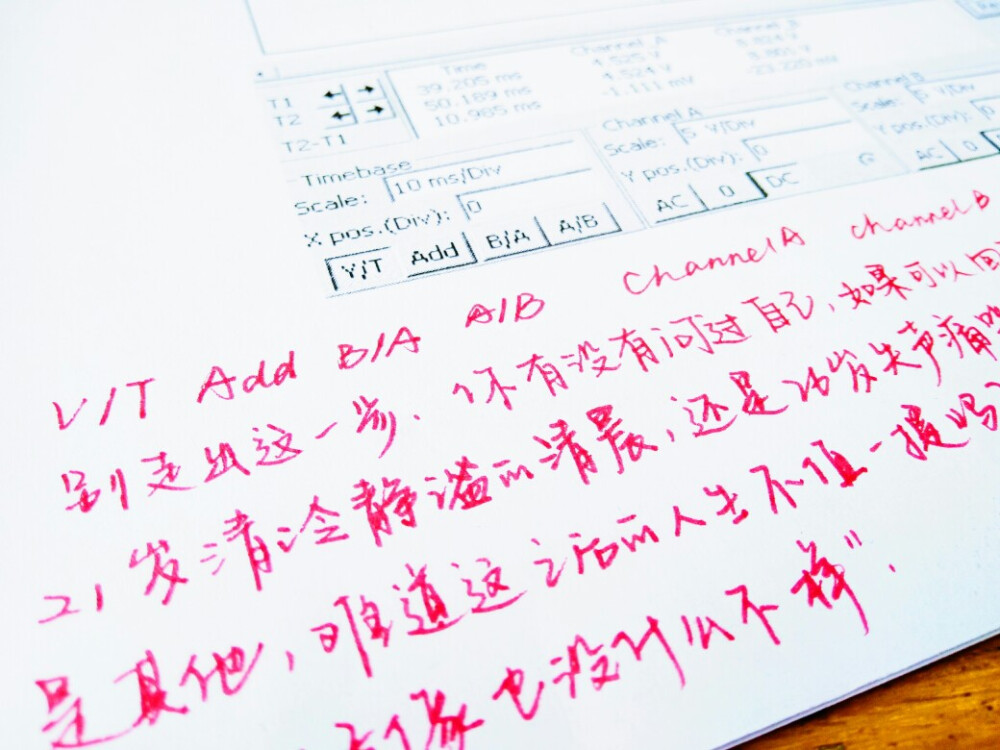 Time Channel A
39.205 ms 4.525 V
T1 50.189 ms 4.524 V
T2 10.985 ms -1.111 mV
T2-T1
Timebase
Scale: 10 ms/Div
X pos.(Div): 0
Y/T Add B/A A/B
Channel A
Scale: 5 V/Div
Y pos.(Div): 0
AC 0 DC
Channel B
Scale: 5 V/Div
Y pos.(Div): 0
AC 0
V/T Add B/A A/B Channel A channel B
别走出这一步. 你有没有问过自己,如果可以回
21岁清冷静溢的清晨,还是 岁失声痛
是其他,难道这之后的人生不值一提吗
像也没什么不一样”.